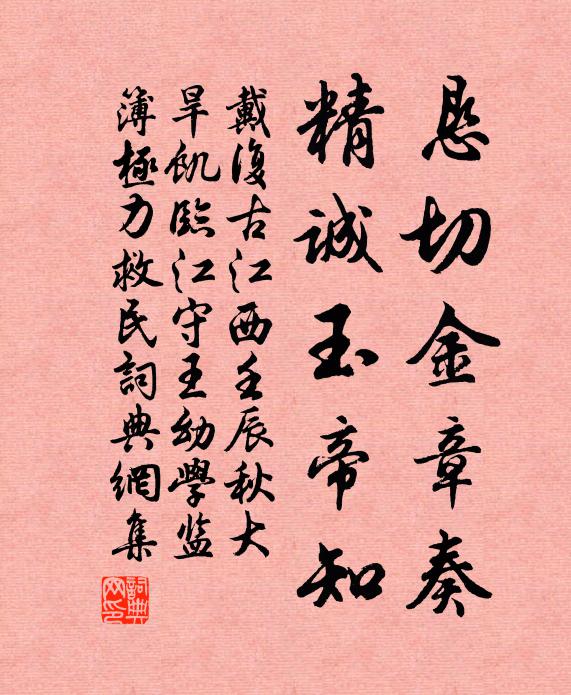 恳切金章奏
精誠玉帝知
戴復古江西壬辰秋大
旱飢臨江守王幼學監
簿極力救民詞典網集
詞典網印